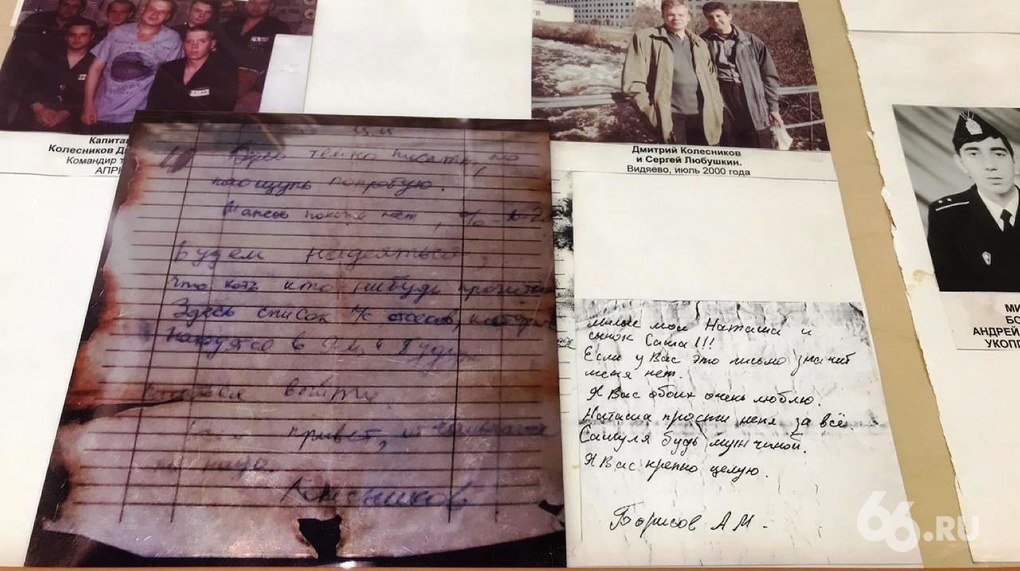 Капитан
Колесников Д
Командир т
АПР
Дмитрий Колесников
и Сергей Любушкин.
Видяево, июль 2000 года
Здесь темно писать, но
наощупь попробую.
Шансов похоже нет, %
Будем надеяться,
что хоть кто нибудь прочитает
Здесь список л/с отсеков, которые
находятся в 9-м и будут
пытаться выйти.
Всем привет, отчаиваться
не надо.
Колесников
милые мои Наташа и
сынок Саша!!!
Если у Вас это письмо значит
меня нет.
Я Вас обоих очень люблю.
Наташа прости меня за всё.
Сашуля будь мужчиной.
Я Вас крепко целую.
Борисов А М.
МИ
БО
АНДРЕЙ
УКОПП
66.RU